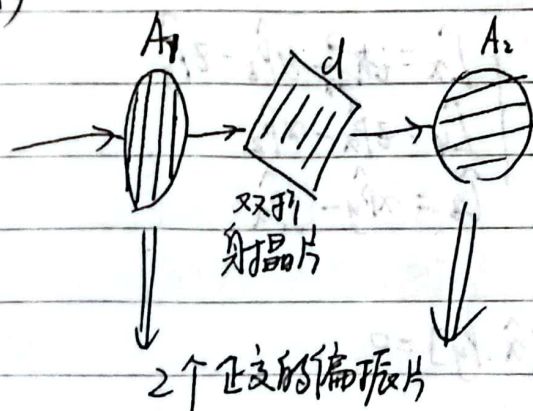 A₁ d A₂
双折
射晶片
2个正交的偏振片